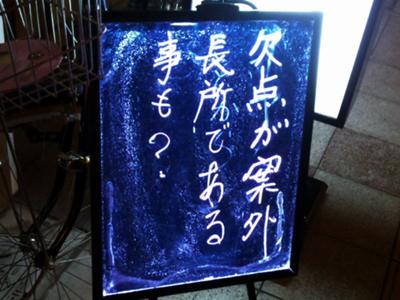 欠点が案外
長所である
事も?